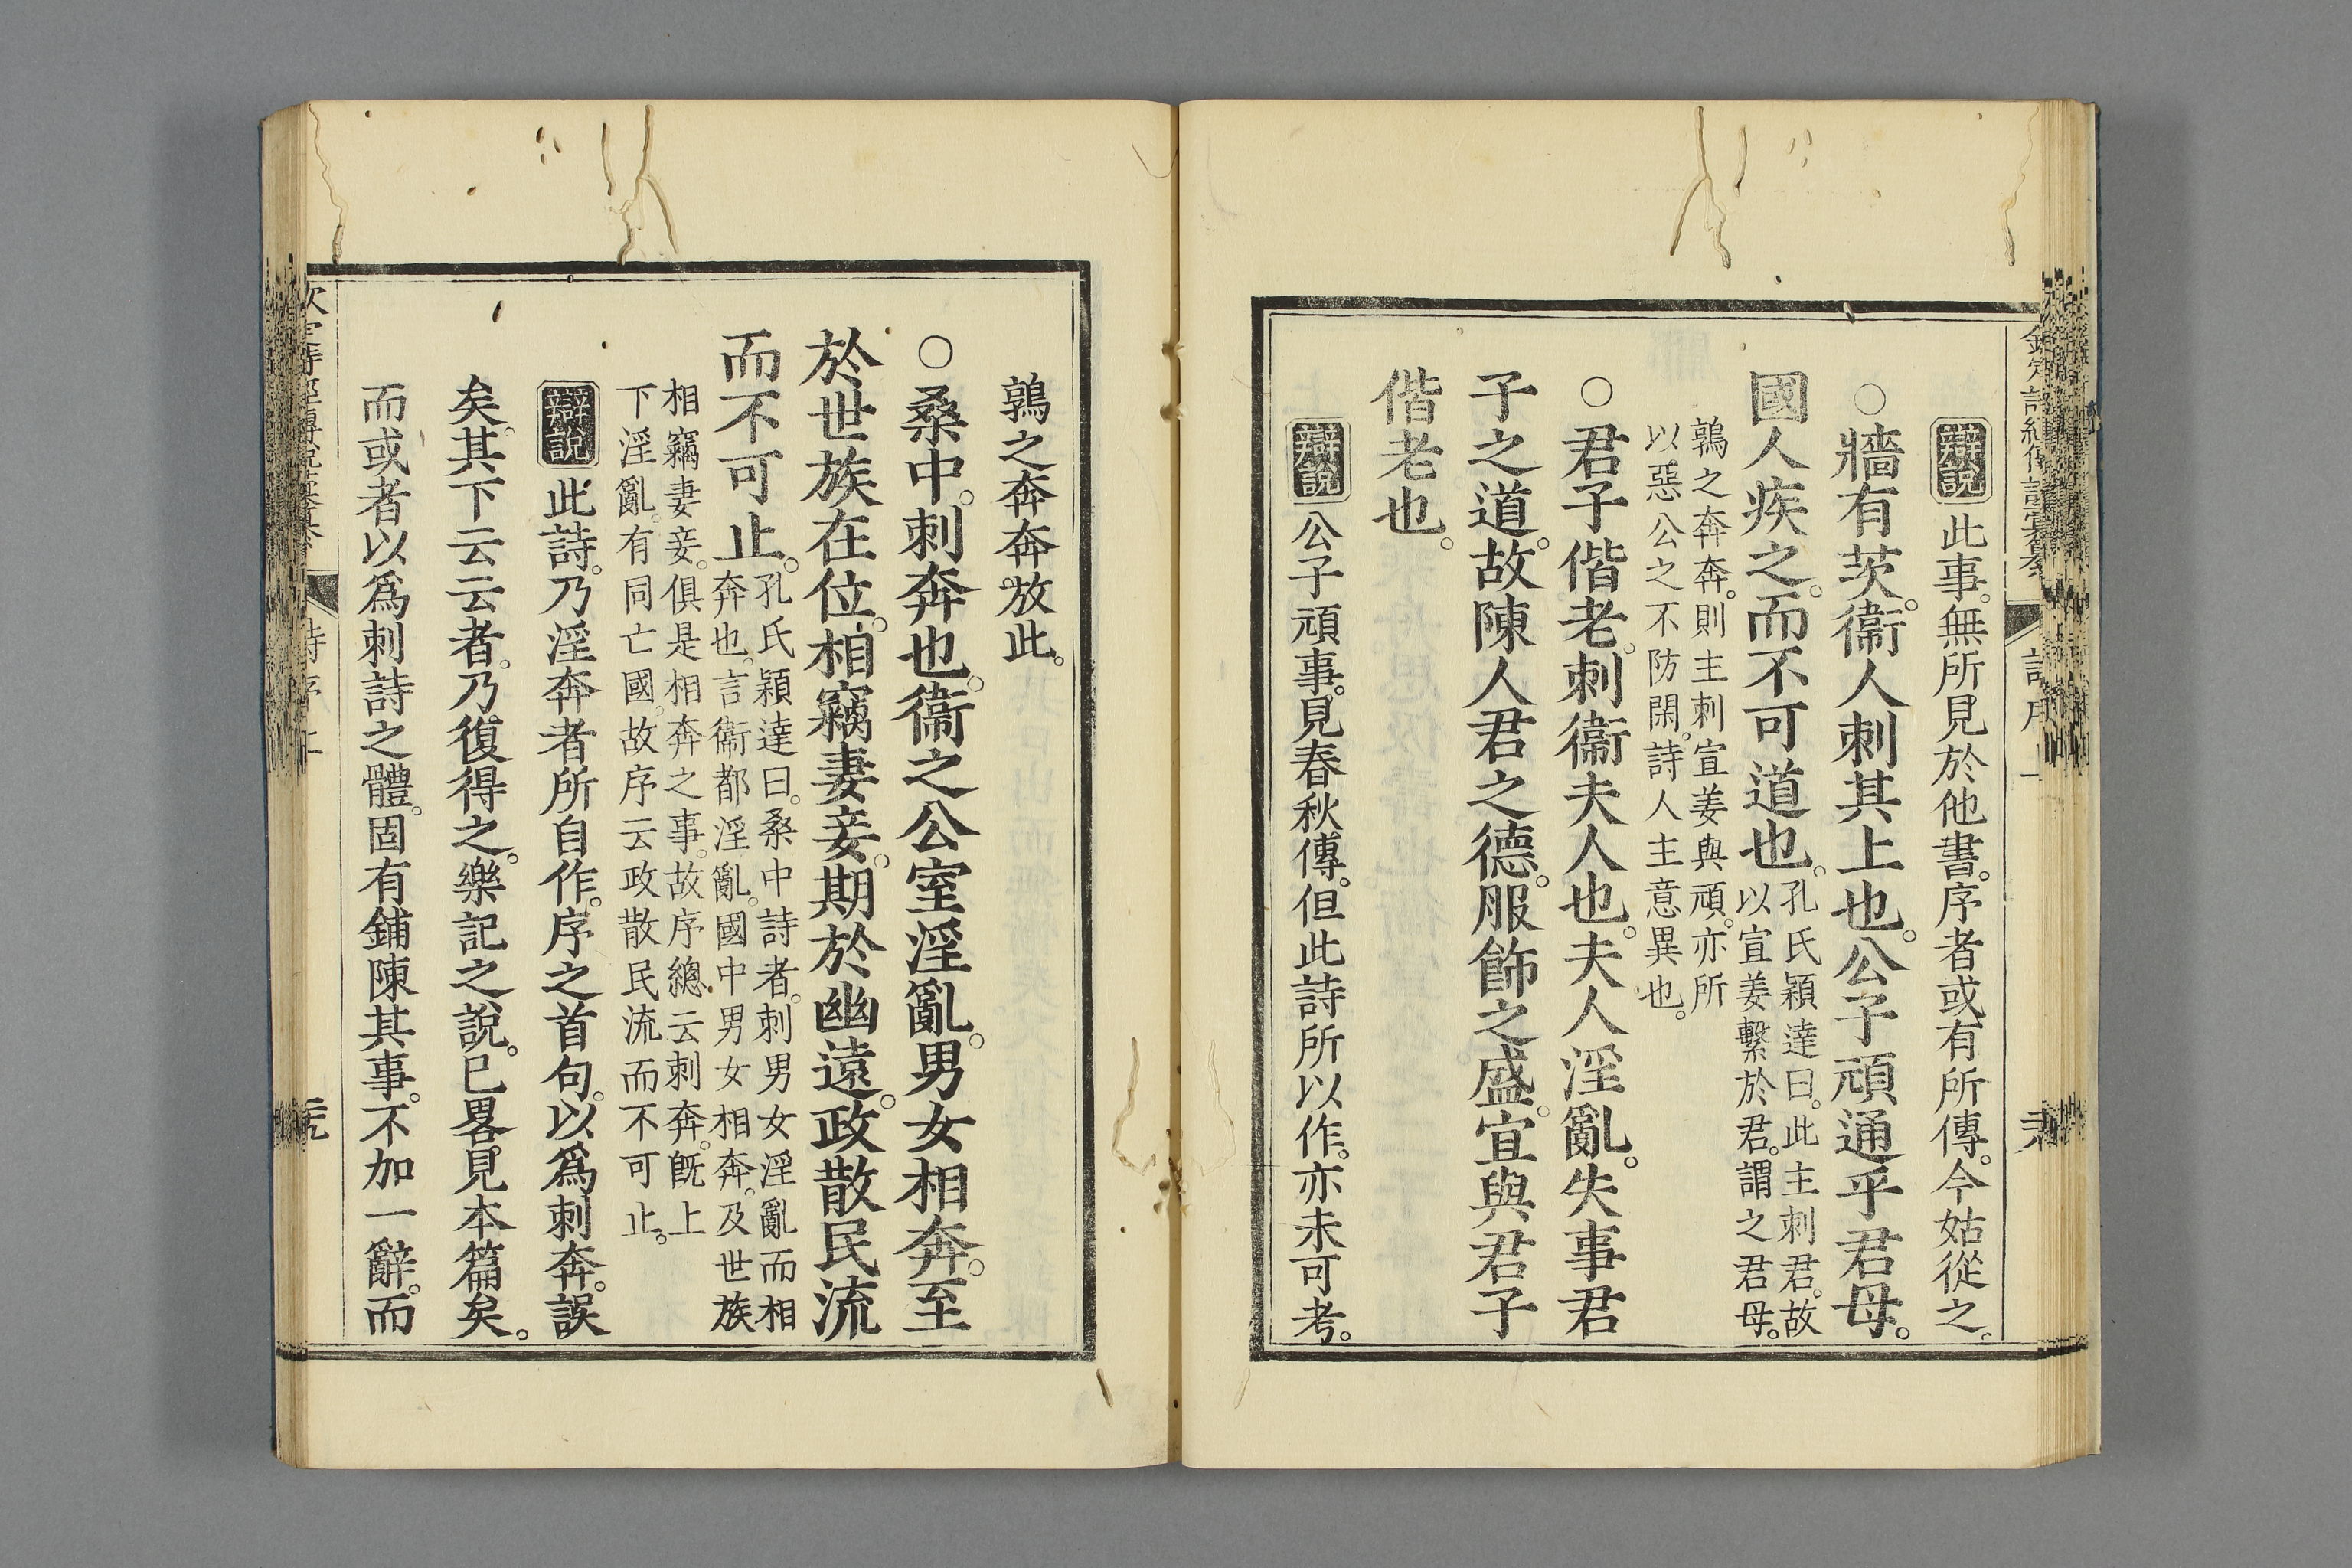 辯說 此事。無所見於他書。序者或有所傳。今姑從之。
○牆有茨。衞人刺其上也。公子頑通乎君母。
國人疾之。而不可道也。
孔氏穎達曰。此主刺君。故
以宣姜繫於君。謂之君母。
鶉之奔奔。則主刺宣姜與頑。亦所
以惡公之不防閑。詩人主意異也。
○君子偕老。刺衞夫人也。夫人淫亂。失事君
子之道。故陳人君之德。服飾之盛。宜與君子
偕老也。
辯說 公子頑事。見春秋傳。但此詩所以作。亦未可考。
鶉之奔奔放此。
○桑中。刺奔也。衞之公室淫亂。男女相奔。至
於世族在位。相竊妻妾。期於幽遠。政散民流
而不可止。
孔氏穎達曰。桑中詩者。刺男女淫亂而相
奔也。言衞都淫亂。國中男女相奔。及世族
相竊妻妾。俱是相奔之事。故序總云刺奔。旣上
下淫亂。有同亡國。故序云政散民流而不可止。
辯說 此詩。乃淫奔者所自作。序之首句。以爲刺奔。誤
矣。其下云云者。乃復得之。樂記之說。已畧見本篇矣。
而或者以爲刺詩之體。固有鋪陳其事。不加一辭。而